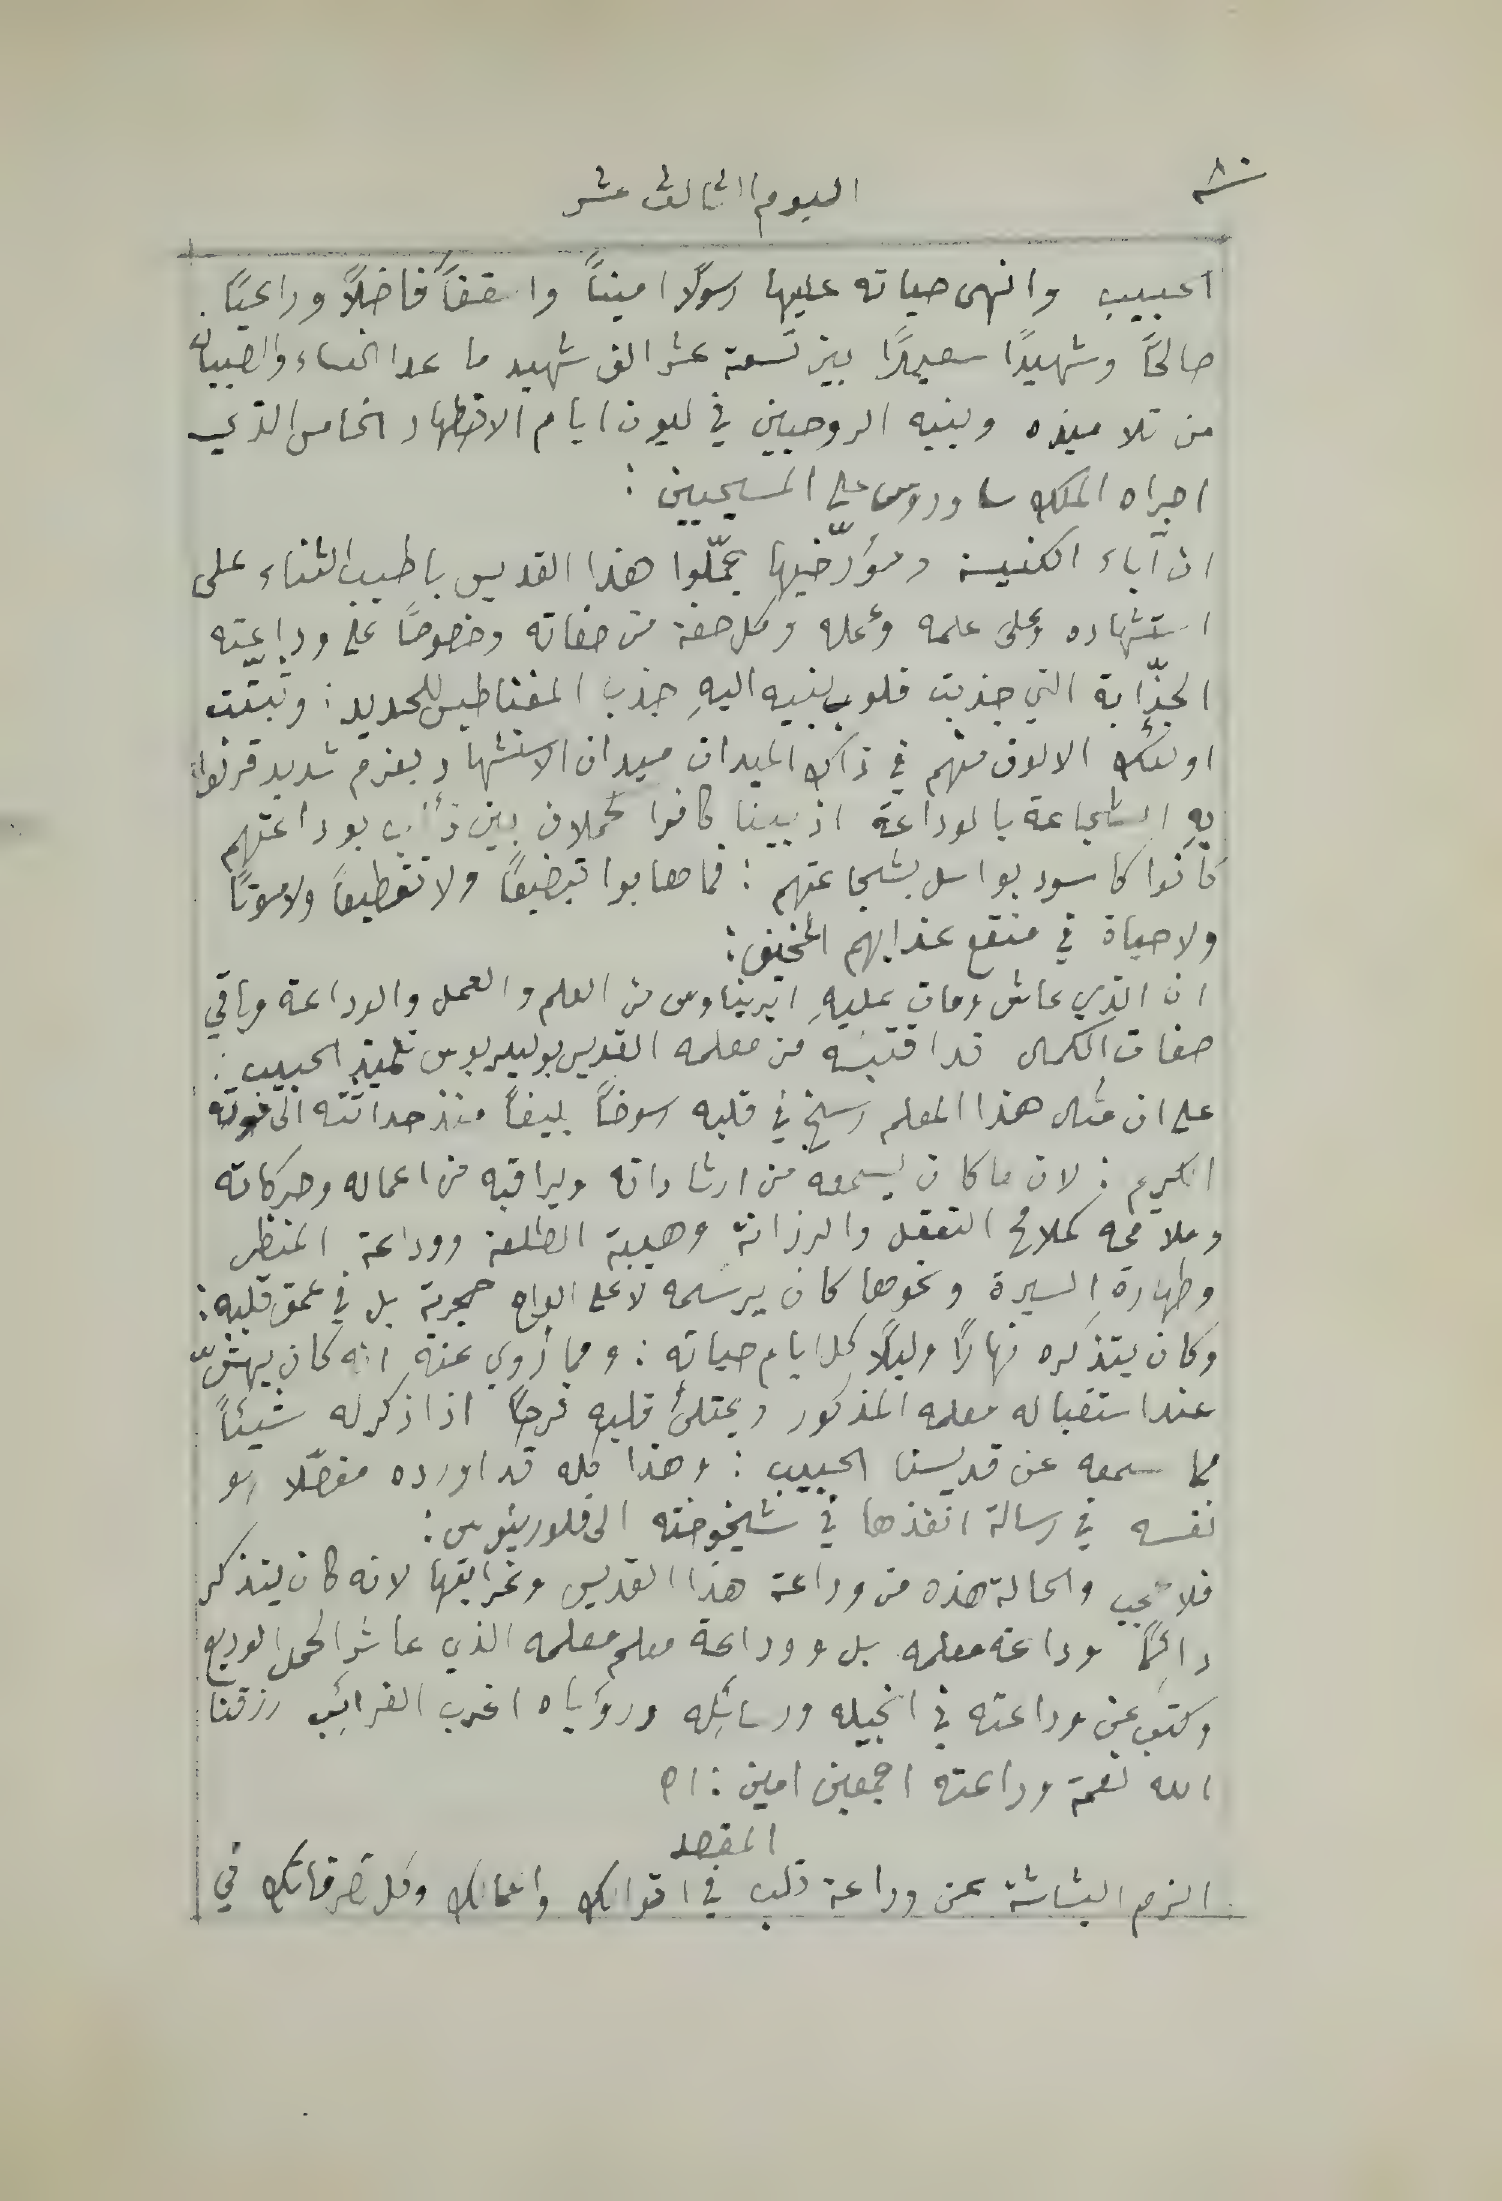 ٨٠
اليوم الثالث عشر
الحبيب وانهى حياته عليها رسولًا اميناً واسقفاً فاضلًا وراعيًا
صالحًا وشهيدًا سعيدًا بين تسعة عشر الف شهيد ما عدا النساء والصبيان
من تلاميذه وبنيه الروحيين في ليون ايام الاضطهاد الخامس الذي
اجراه الملك ساوروس على المسيحيين :
ان آباء الكنيسة ومؤرّخيها يجمّلوا هذا القديس باطيب الثناء على
استشهاده وعلى علمه وعمله وكل صفة من صفاته وخصوصًا على وداعته
الجذّابة التي جذبت قلوب بنيه اليهِ جذب المغناطيس للحديد : وثبتت
اولئك الالوف منهم في ذاك الميدان ميدان الاستشهاد بعزم شديد قرنوا
بهِ الشجاعة بالوداعة اذ بينا كانوا كحملان بين ذئاب بوداعتهم
كانوا كاسود بواسل بشجاعتهم : فما هابوا تبضيعًا ولا تقطيعاً ولا موتًا
ولا حياة في منقع عذابهم المخيف :
ان الذي عاش ومات عليهِ ايريناوس من العلم والعمل والوداعة وباقي
صفات الكمال قد اقتبسه من معلمه القديس بوليكربوس تلميذ الحبيب :
على ان مثال هذا المعلم رسخ في قلبه رسوخًا بليغاً منذ حداثته الى موته
الكريم : لان ما كان يسمعه من ارشاداته ويراقبه من اعماله وحركاته
وملامحه كملامح التعقل والرزانة وهيبة الطلعة ووداعة المنظر
وطهارة السيرة ونحوها كان يرسمه لا على الواح حجرية بل في عمق قلبه :
وكان يتذكره نهارًا وليلًا كل ايام حياته : ومما رُوي عنه انه كان يهشّ
عند استقباله معلمه المذكور ويمتلئ قلبه فرحًا اذا ذكر له شيئاً
مما سمعه عن قديسنا الحبيب : وهذا كله قد اورده مفصّلا هو
نفسه في رسالة انفذها في شيخوخته الى فلورينوس :
فلا عجب والحالة هذه من وداعة هذا القديس وغرابتها لانه كان يتذكر
دائمًا وداعة معلمه بل ووداعة معلم معلمه الذي عاشر الحمل الوديع
وكتب عن وداعته في انجيله ورسائله ورؤياه اغرب الغرائب رزقنا
الله نعمة وداعته اجمعين امين : اه
المقصد
الزم البشاشة عن وداعة قلب في اقوالك واعمالك وكل تصرفاتك في